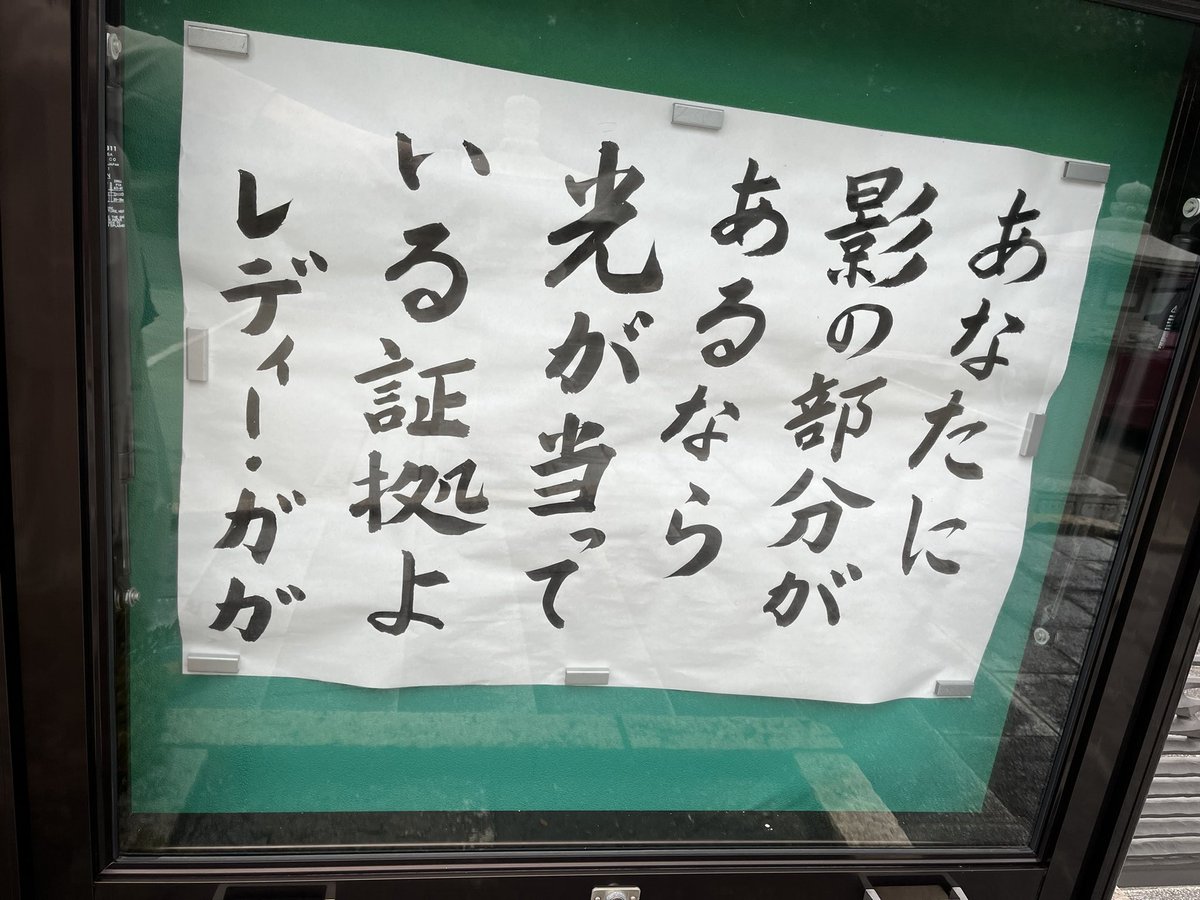 あなたに
影の部分が
あるなら
光が当って
いる証拠よ
レディー・ガガ